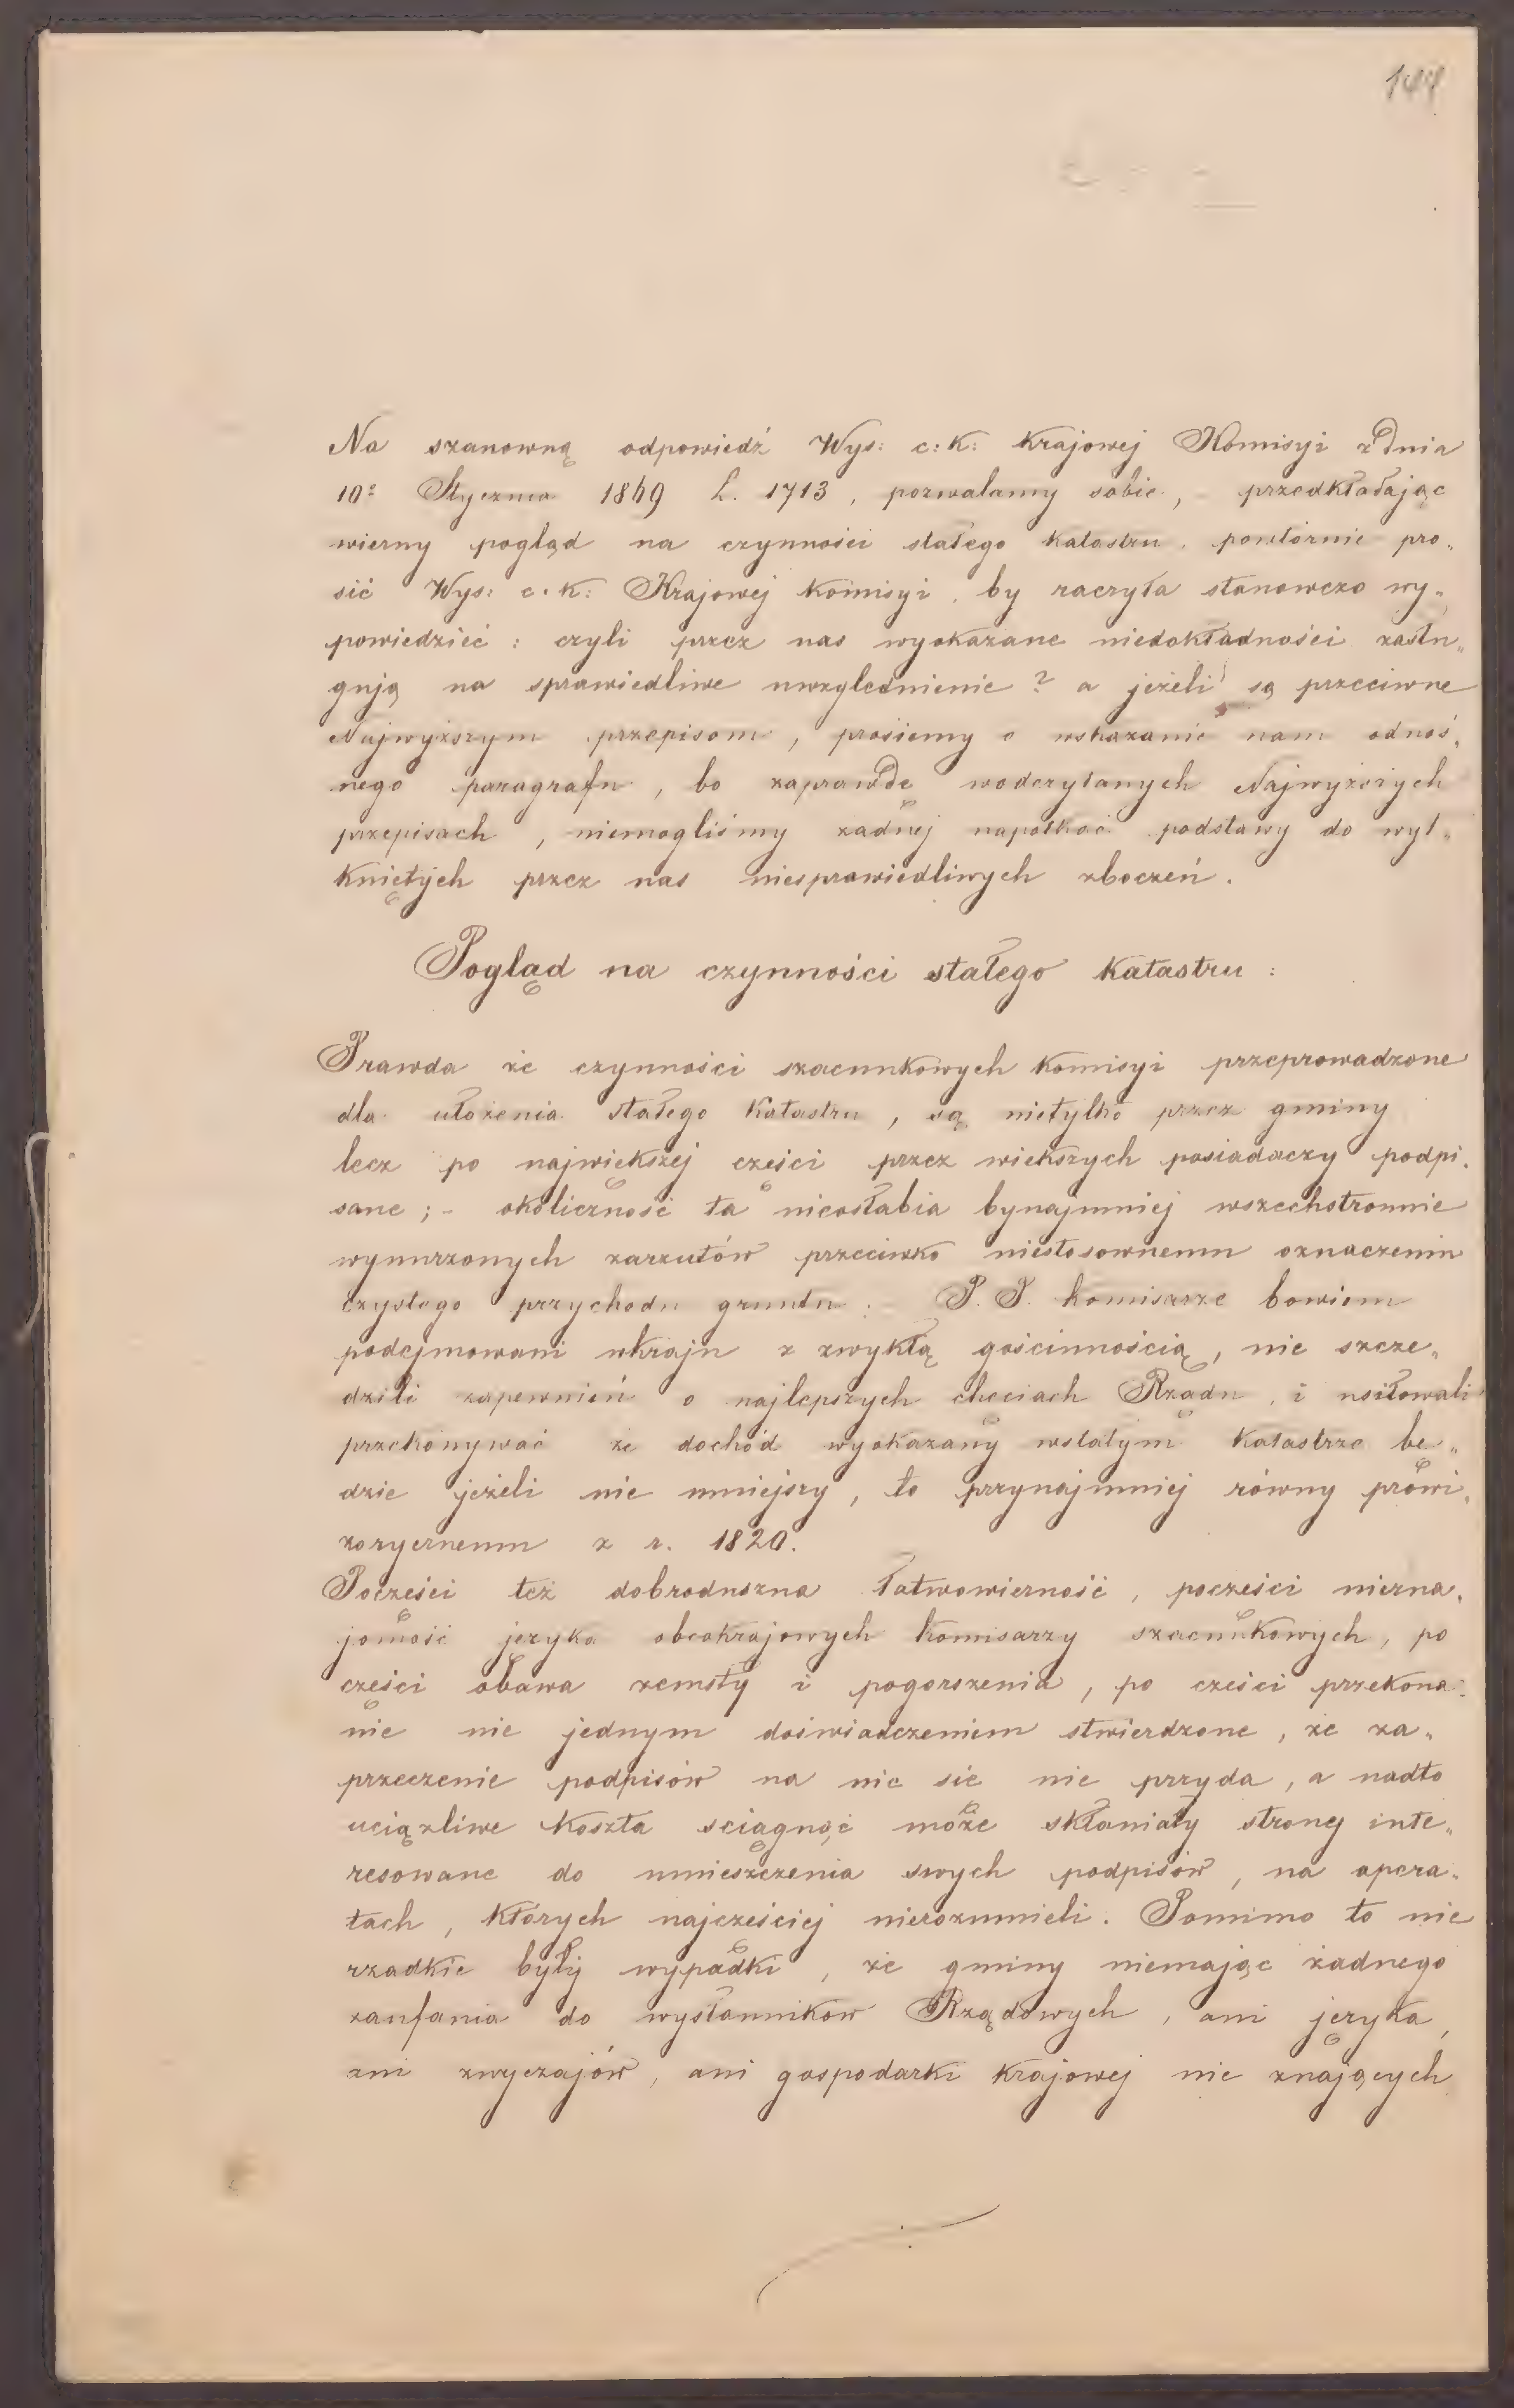 144
Na szanowną odpowiedź Wys: c: k: krajowej Komisyi z dnia
10º Stycznia 1869 L. 1713, pozwalamy sobie, - przedkładając
wierny pogląd na czynności stałego katastru, powtórnie pro„
sić Wys: c. k: Krajowej Komisyi, by raczyła stanowczo wy„
powiedzieć: czyli przez nas wykazane niedokładności zasłu„
gują na sprawiedliwe uwzględnienie? a jeżeli są przeciwne
Najwyższym przepisom, prosiemy o wskazanie nam odnoś„
nego paragrafu, bo zaprawdę wodczytanych Najwyższych
przepisach, niemogliśmy żadnej napotkać podstawy do wyt„
kniętych przez nas niesprawiedliwych zboczeń.
Pogląd na czynności stałego katastru:
Prawda że czynności szacunkowych komisyi przeprowadzone
dla ułożenia stałego katastru, są nietylko przez gminy
lecz po największej części przez większych posiadaczy podpi„
sane; - okoliczność ta nieosłabia bynajmniej wszechstronnie
wynurzonych zarzutów przeciwko niestosownemu oznaczeniu
czystego przychodu gruntu. P. P. komisarze bowiem
podejmowani wkraju z zwykłą gościnnością, nie szczę„
dzili zapewnień o najlepszych chęciach Rządu, i usiłowali
przekonywać że dochód wykazany wstałym katastrze bę„
dzie jeżeli nie mniejszy, to przynajmniej równy prowi„
zorycznemu z r. 1820.
Poczęści też dobroduszna łatwowierność, poczęści niezna„
jomość języka obcokrajowych komisarzy szacunkowych, po
części obawa zemsty i pogorszenia, po części przekona„
nie nie jednym doświadczeniem stwierdzone, że za„
przeczenie podpisów na nic sie nie przyda, a nadto
uciążliwe koszta sciągnąć może skłaniały strony inte„
resowane do umieszczenia swych podpisów, na opera„
tach, których najczęściej nierozumieli. Pomimo to nie
rzadkie były wypadki, że gminy niemając żadnego
zaufania do wysłanników Rządowych, ani języka,
ani zwyczajów, ani gospodarki krajowej nie znających